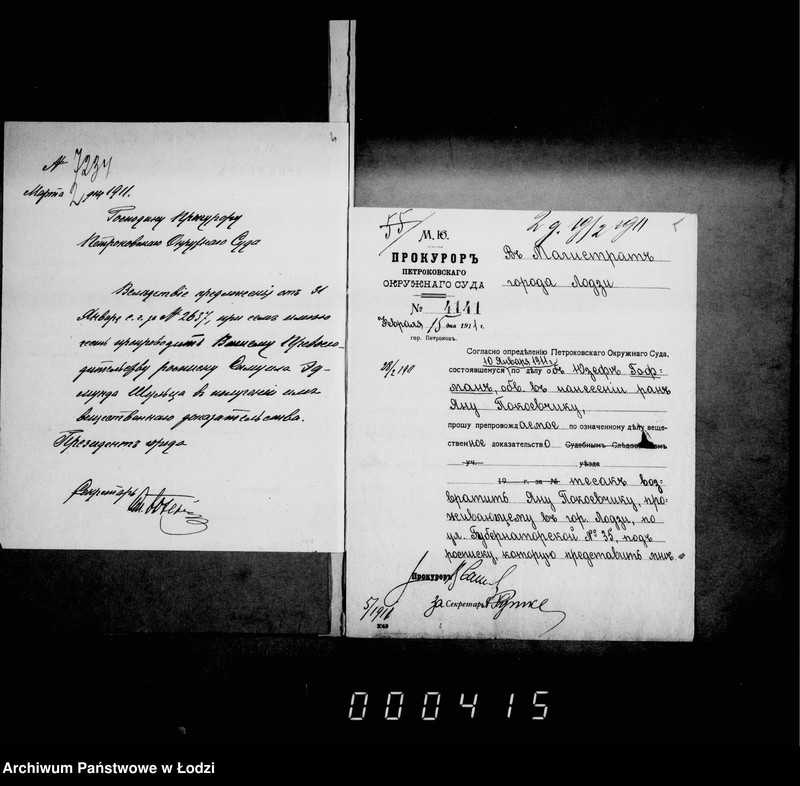 № 7234
Марта 2 дня 1911.
Господину Прокурору
Петроковскаго Окружнаго Суда
Вследствіе предложенія отъ 31
Января с. г. за № 2637, при семъ имѣю
честь препроводить Вашему Превосхо-
дительству росписку Самуила Эд-
мунда Шульца въ полученіи имъ
вещественнаго доказательства.
Президентъ города
Секретарь
55
2 д. 19/2 1911
М. Ю.
ПРОКУРОРЪ
ПЕТРОКОВСКАГО
ОКРУЖНАГО СУДА
№ 4141
Февраля 15 дня 1911 г.
гор. Петроковъ.
Въ Магистратъ
города Лодзи
28/2 190
Согласно опредѣленію Петроковскаго Окружнаго Суда,
10 Января 1911 г.
состоявшемуся по дѣлу объ Юзефѣ Гоф-
манѣ, обв. въ нанесеніи ранъ
Яну Покоевчику,
прошу препровождаемое по означенному дѣлу веще-
ственное доказательство Судебнымъ Слѣдователемъ
уч. уѣзда
19 г. за № тесакъ воз-
вратить Яну Покоевчику, про-
живающему въ гор. Лодзи, по
ул. Губернаторской № 35, подъ
росписку, которую представить мнѣ.
Прокуроръ
За Секретарь
5/1911
000415
Archiwum Państwowe w Łodzi